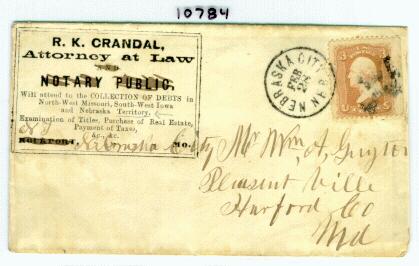 10784
R. K. CRANDAL,
Attorney at Law
AND
NOTARY PUBLIC,
Will attend to the COLLECTION OF DEBTS in
North-West Missouri, South-West Iowa
and Nebraska Territory.
Examination of Titles, Purchase of Real Estate,
Payment of Taxes,
&c., &c.
N. T.
ROCKPORT, Nebraska City MO.
NEBRASKA CITY NEB
FEB 24
3 3
U POSTAGE S
Mr Wm A,
Pleasent Ville
Harford Co
Md